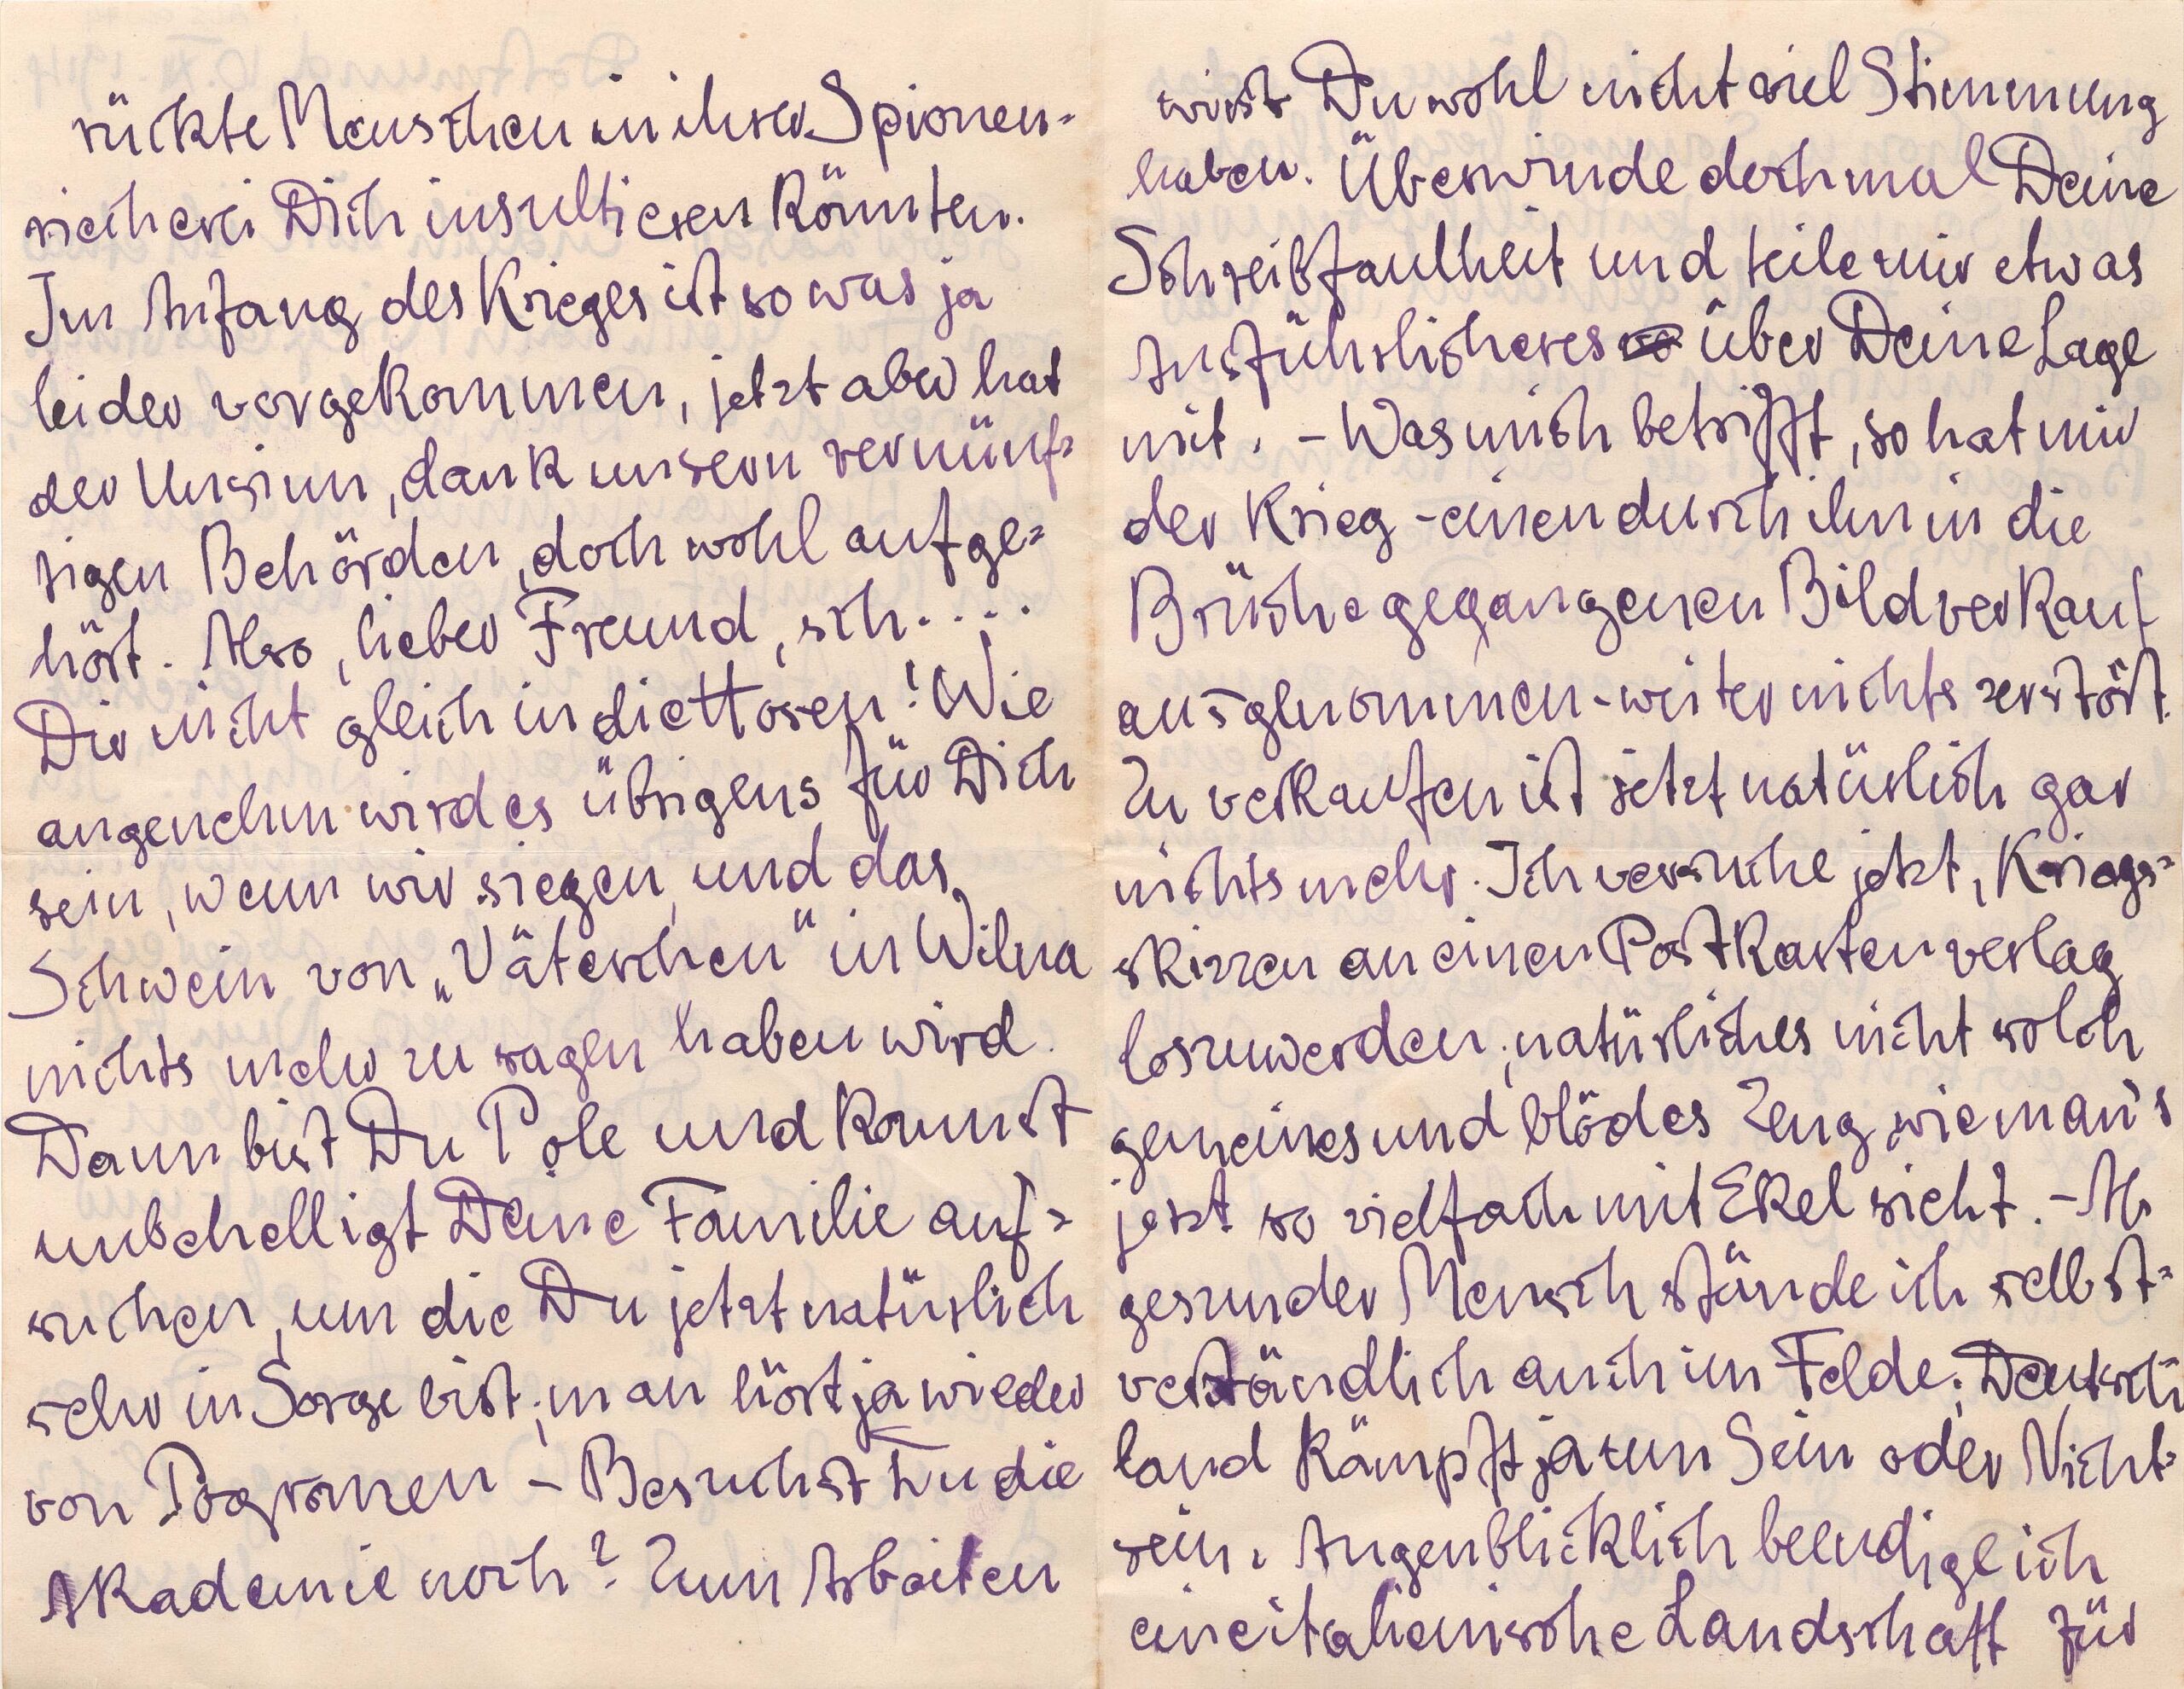 rückte Menschen in ihrer Spionen-
riecherei Dich insultieren könnten.
Im Anfang des Krieges ist so was ja
leider vorgekommen, jetzt aber hat
der Unsinn, dank unsern vernünf-
tigen Behörden, doch wohl aufge-
hört. Also, lieber Freund, sch....
Dir nicht gleich in die Hosen! Wie
angenehm wird es übrigens für Dich
sein, wenn wir siegen, und das
Schwein von „Väterchen" in Wilna
nichts mehr zu sagen haben wird.
Dann bist Du Pole und kannst
unbehelligt Deine Familie auf-
suchen, um die Du jetzt natürlich
sehr in Sorge bist; man hört ja wieder
von Pogromen – Besuchst Du die
Akademie noch? Zum Arbeiten
wirst Du wohl nicht viel Stimmung
haben. Überwinde doch mal Deine
Schreibfaulheit und teile mir etwas
Ausführlicheres über Deine Lage
mit. – Was mich betrifft, so hat mir
der Krieg – einen durch ihn in die
Brüche gegangenen Bildverkauf
ausgenommen – weiter nichts zerstört.
Zu verkaufen ist jetzt natürlich gar
nichts mehr. Ich versuche jetzt, Kriegs-
skizzen an einen Postkartenverlag
loszuwerden; natürliches nicht solch
gemeines und blödes Zeug, wie man's
jetzt so vielfach mit Ekel sieht. – Als
gesunder Mensch stände ich selbst-
verständlich auch im Felde; Deutsch-
land kämpft ja um Sein oder Nicht-
sein. Augenblicklich beendige ich
eine italienische Landschaft für